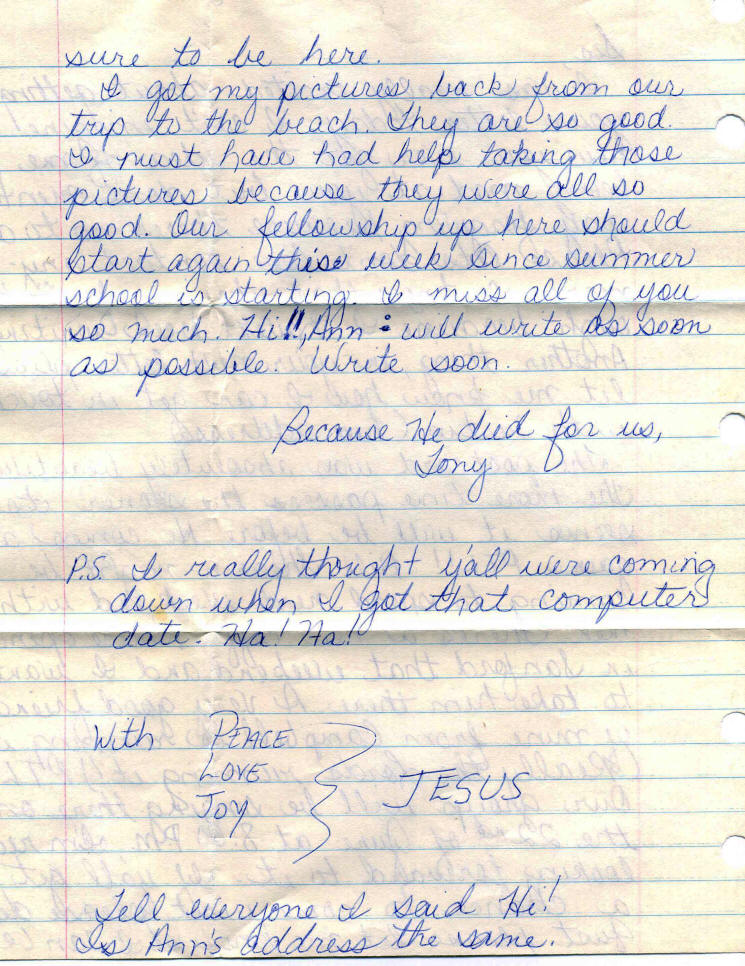 sure to be here.
I got my pictures back from our
trip to the beach. They are so good.
I must have had help taking those
pictures because they were all so
good. Our fellowship up here should
start again this week since summer
school is starting. I miss all of you
so much. Hi!!, Ann: will write as soon
as possible. Write soon.
Because He died for us,
Tony
P.S. I really thought y'all were coming
down when I got that computer
date. Ha! Ha!
With PEACE
LOVE
JOY
JESUS
Tell everyone I said Hi!
Is Ann's address the same.